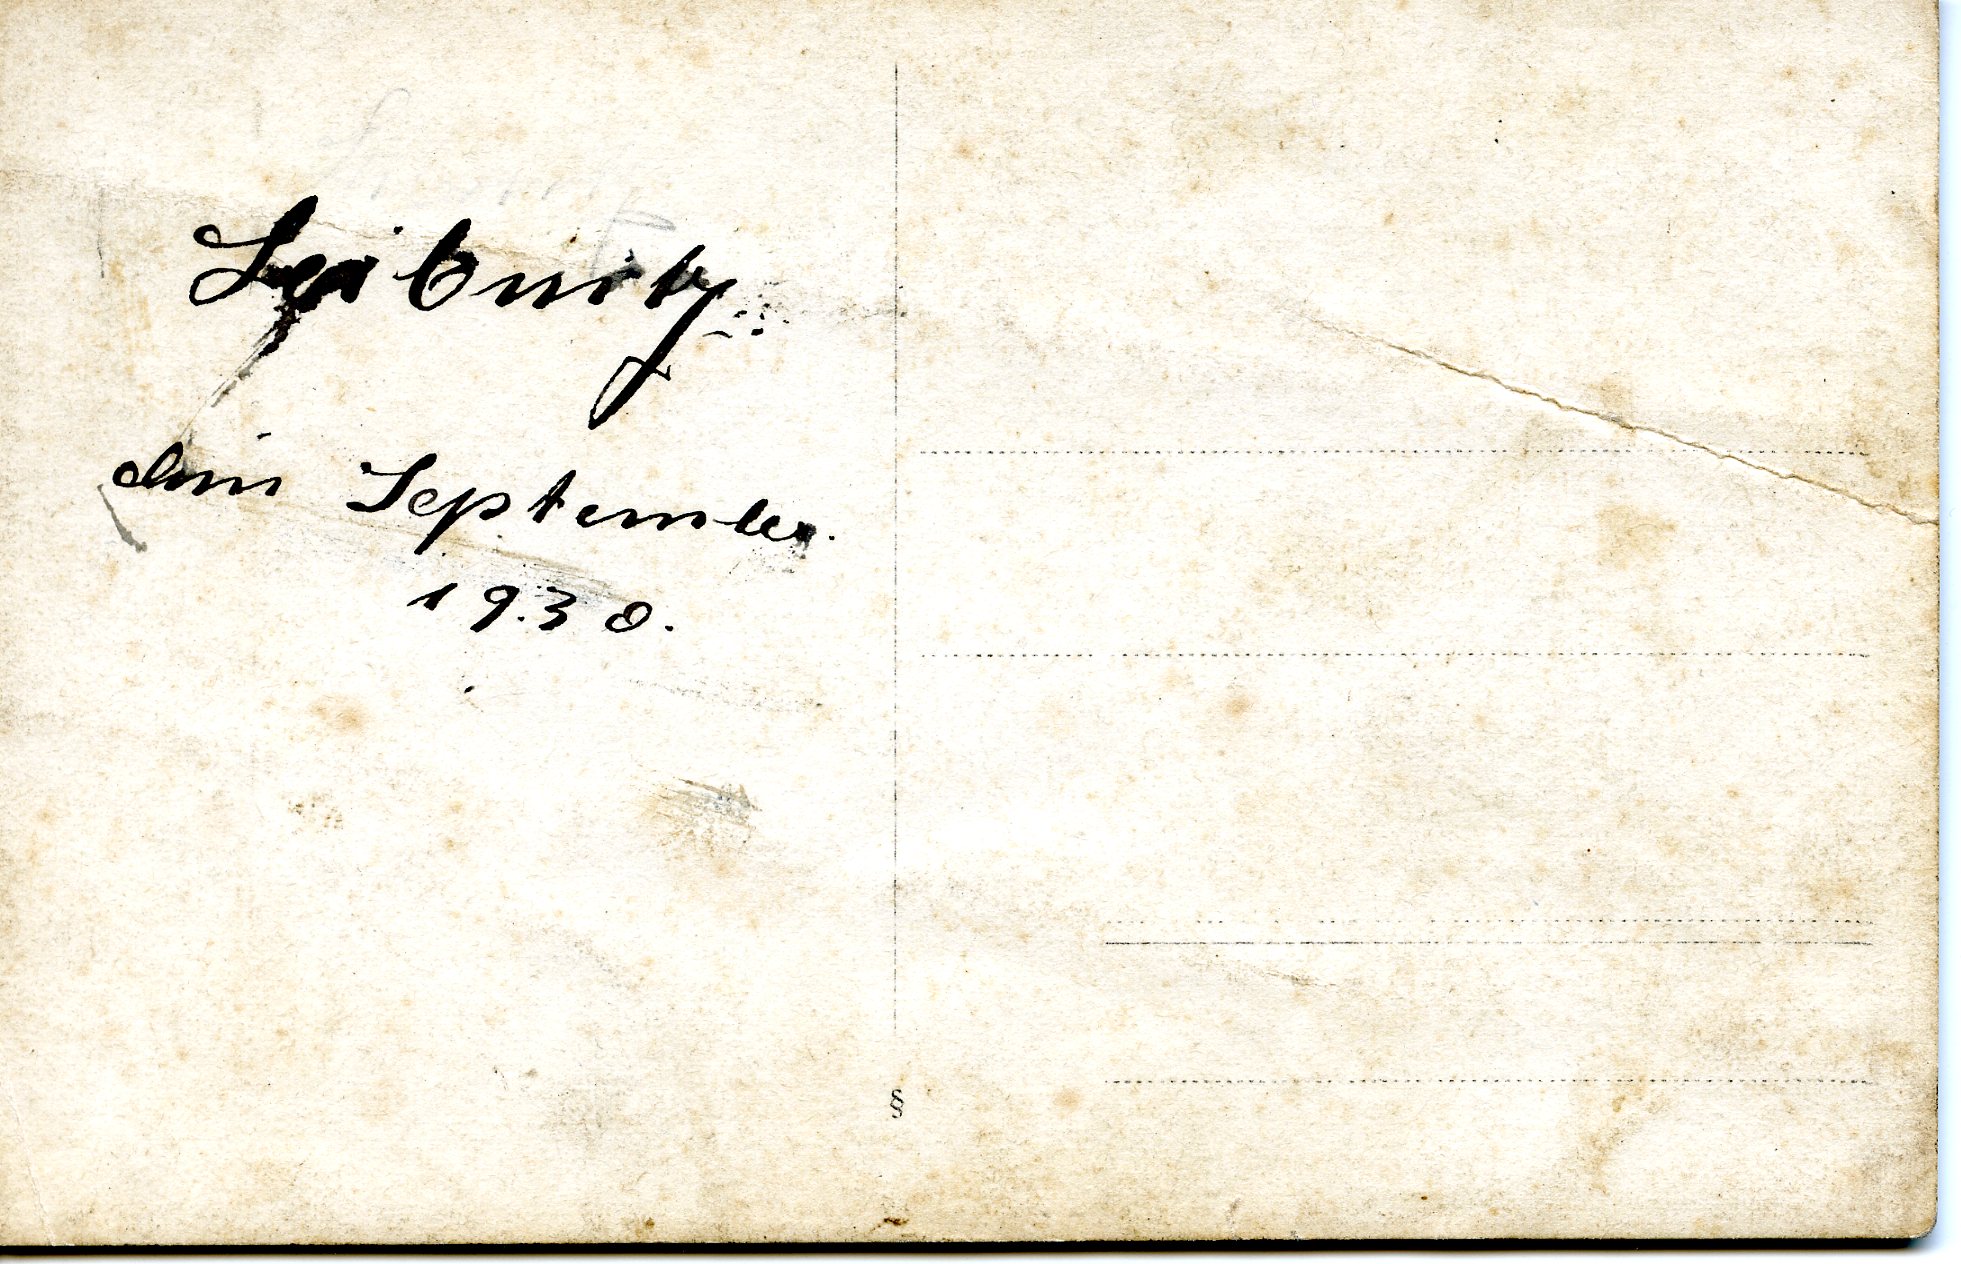 Leibnitz
im September.
1930.
§